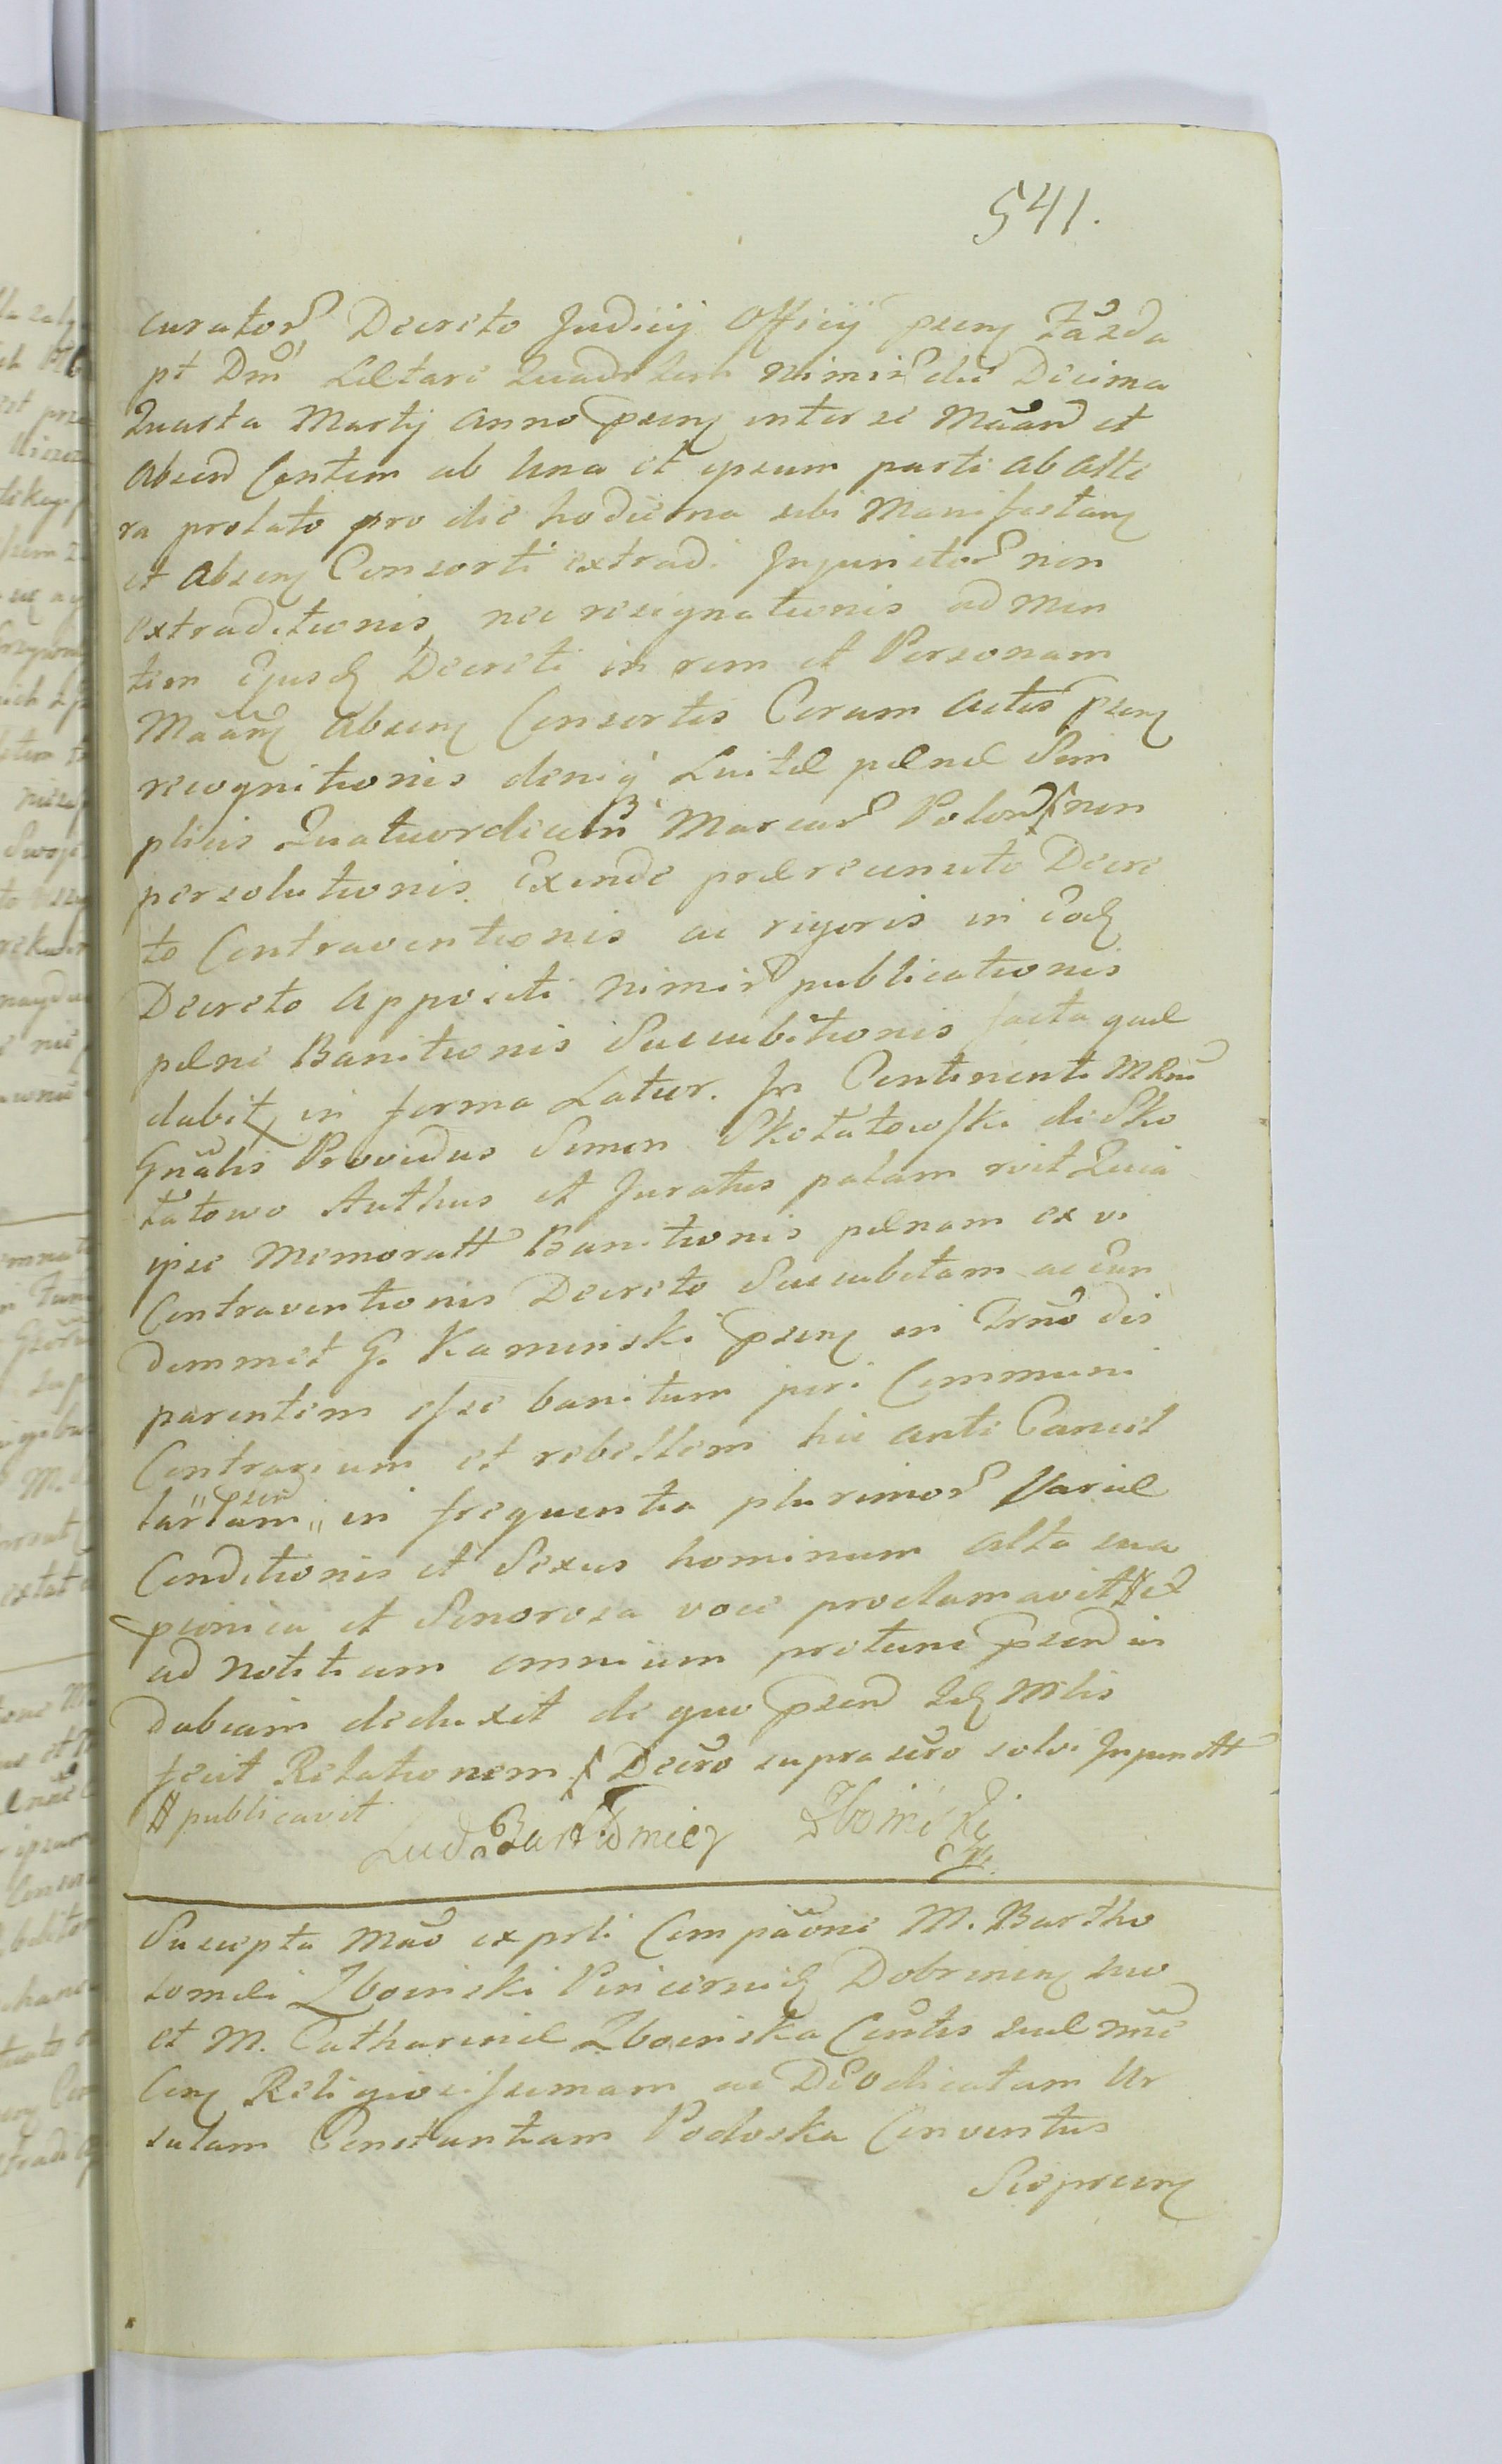 541.
curator Decreto Judicij Officij psenꝫ Fa 2da
pt Dmc Lætare Quadr nimir die Decima
Quarta Martij anno psenꝫ inter se Maan et
absen Contem ab una et ipsum parte ab alte
ra prolato pro die hodierna sibi Manifestanꝫ
et absenꝫ Consorti extradi Injunctor non
extraditionis nec resignationis ad men
tem Ejusdꝫ Decreti in rem et Personam
Maanꝫ absenꝫ Consortis Coram actis psenꝫ
recognitionis deniq Luitæ pænæ Sim
plicis Quatuordicim Marcar Polon non
persolutionis. Exinde prærecensito Decre
to Contraventionis ac rigoris in Eodꝫ
Decreto appositi nimir publicationis
pænæ Banitionis Succubitionis facta quæ
dabitꝫ in forma Latior. In Continenti MRni
Gnalis Providus Simon Skotatowski de Sko
tatowo Authus et Juratus palam rvit Quia
ipse Memoratt Banitionis pænam ex vi
Contraventionis Decreto Succubitam ac eun
demmet G. Kaminski psenꝫ in Trno dis
parentem esse banitum juri Communi
Contrarium et rebellem hic ante Cancel
lariam „psen„ in frequentia plurimor Variæ
Conditionis et Sexus hominum alta sua
pconica et Sonorosa voce proclamavit # et
ad notitiam omnium protunc psen in
dubiam deduxit de quo psen Idꝫ Mrlis
fecit Relationem ∫ Decro supra scro solvi Injunctt
# publicavit
Lud Bartlomiey Zboinski
Suscepta Mao ex prli Compaone M. Bartho
lomei Zboinski Pincernidꝫ Dobrinenꝫ suo
et M. Catharinæ Zboinska Contis suæ nne
Cenꝫ Religiosissimam ac DEodicatam Ur
sulam Constantiam Podoska Conventus
Sieprcenꝫ